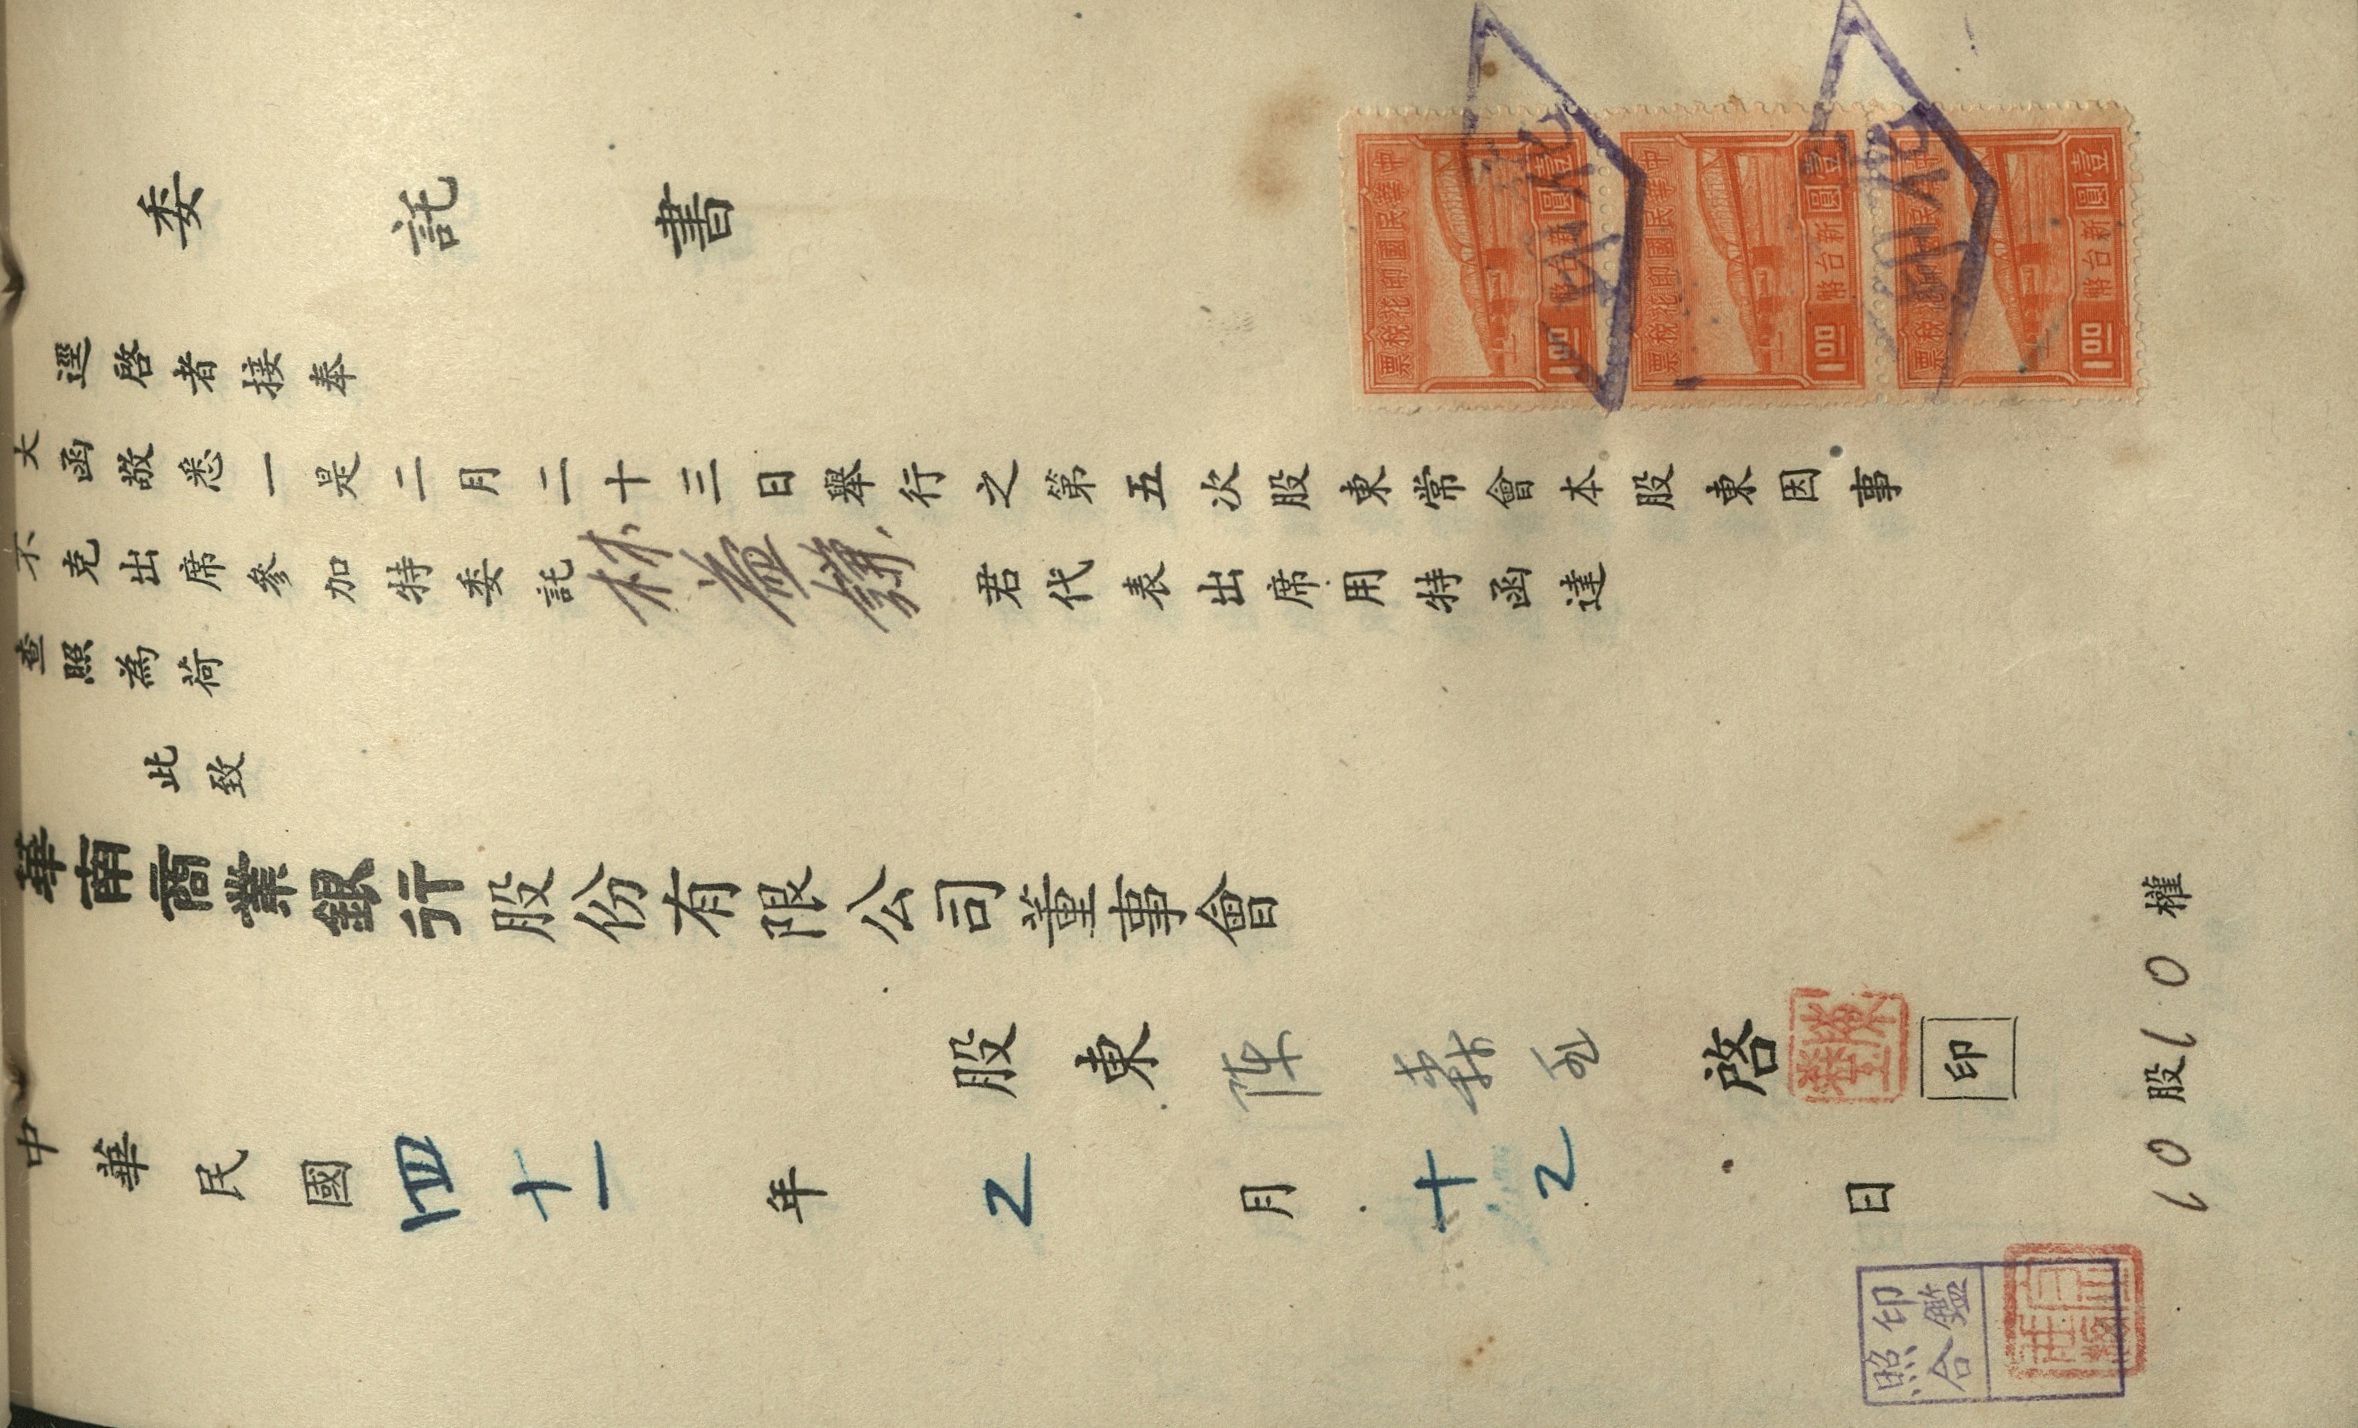 委託書
逕啓者接奉
大函敬悉一是二月二十三日舉行之第五次股東常會本股東因事
不克出席參加特委託林益謙君代表出席用特函達
查照為荷
此致
華南商業銀行股份有限公司董事會
股東陳 啓
印
中華民國四十一年2月十2日
10股10權
中華民國印花稅票
壹圓
新台幣
1.00
中華民國印花稅票
壹圓
新台幣
1.00
中華民國印花稅票
壹圓
新台幣
1.00
印鑑
照合